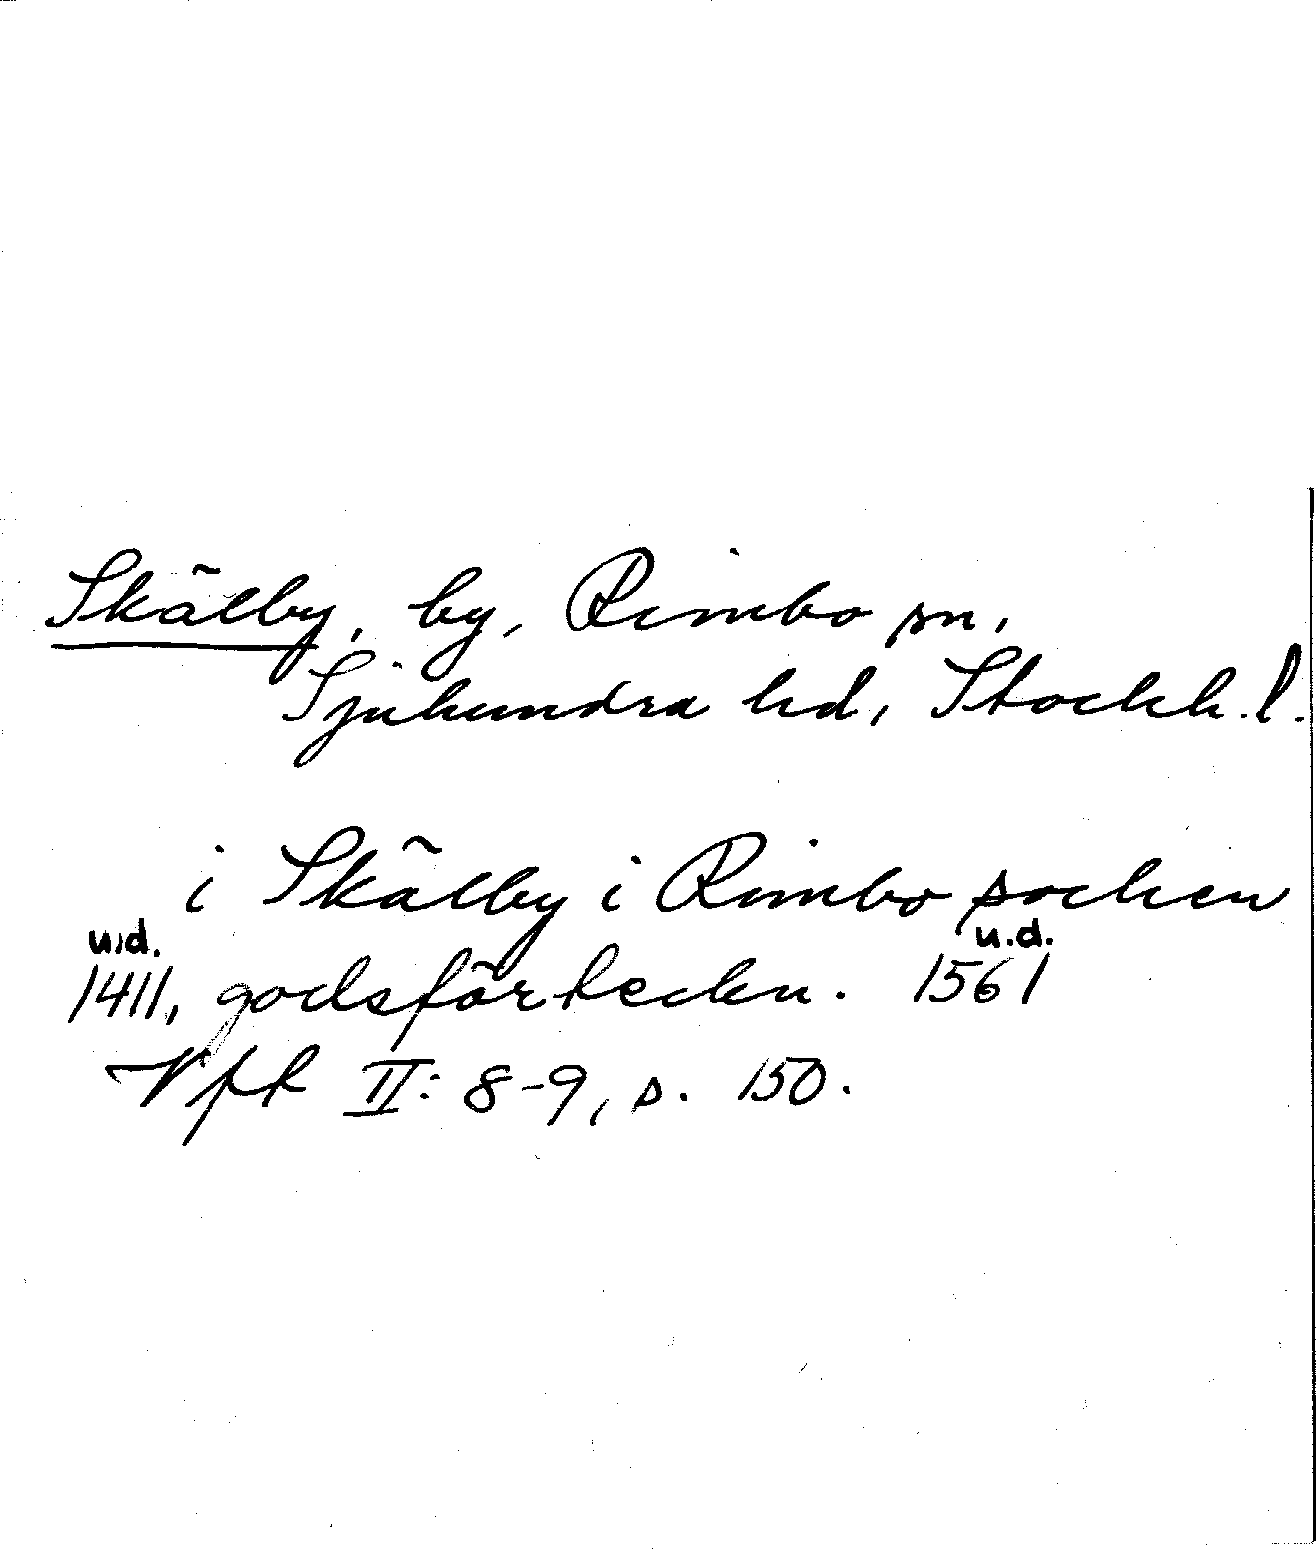 Skälby, by, Rimbo sn,
Sjuhundra hd, Stockh. l.
i Skälby i Rimbo socken
u.d. u.d.
1411, godsförteckn. 1561
Vfk II: 8-9, s. 150.